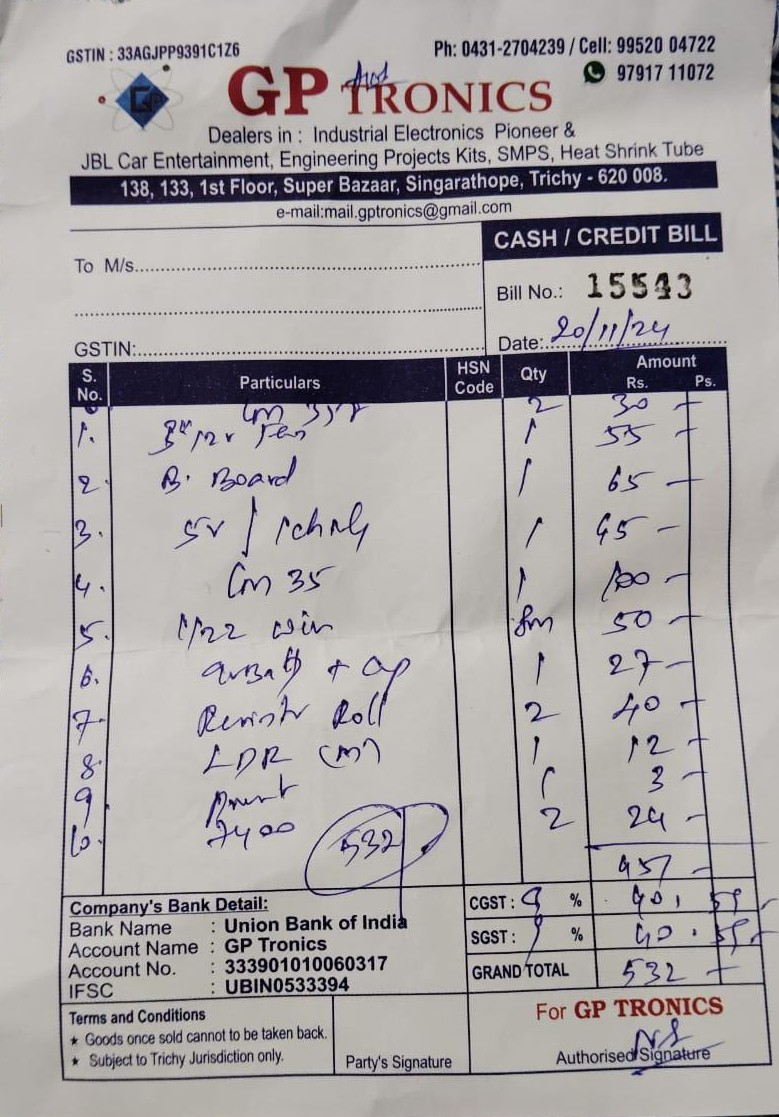 GSTIN : 33AGJPP9391C1Z6
Ph: 0431-2704239 / Cell: 99520 04722
97917 11072
GP TRONICS
Dealers in : Industrial Electronics Pioneer &
JBL Car Entertainment, Engineering Projects Kits, SMPS, Heat Shrink Tube
138, 133, 1st Floor, Super Bazaar, Singarathope, Trichy - 620 008.
e-mail:mail.gptronics@gmail.com
CASH / CREDIT BILL
To M/s.
Bill No.: 15543
Date: 20/11/24
GSTIN:
S. No. Particulars HSN Code Qty Amount Rs. Ps.
2 30 -
1. 1 55 -
2. B. Board 1 65 -
3. 5v 1 45 -
4. Lm 35 1 100 -
5. 1/22 8m 50 -
6. + cap 1 27 -
7. Resistr Roll 2 40 -
8. LDR (M) 1 12 -
9 1 3
10. 7400 2 24 -
532
457 -
Company's Bank Detail:
Bank Name : Union Bank of India
Account Name : GP Tronics
Account No. : 333901010060317
IFSC : UBIN0533394
CGST : 9 % 40.
SGST : 9 % 40.
GRAND TOTAL 532 -
Terms and Conditions
★ Goods once sold cannot to be taken back.
★ Subject to Trichy Jurisdiction only.
Party's Signature
For GP TRONICS
Authorised Signature